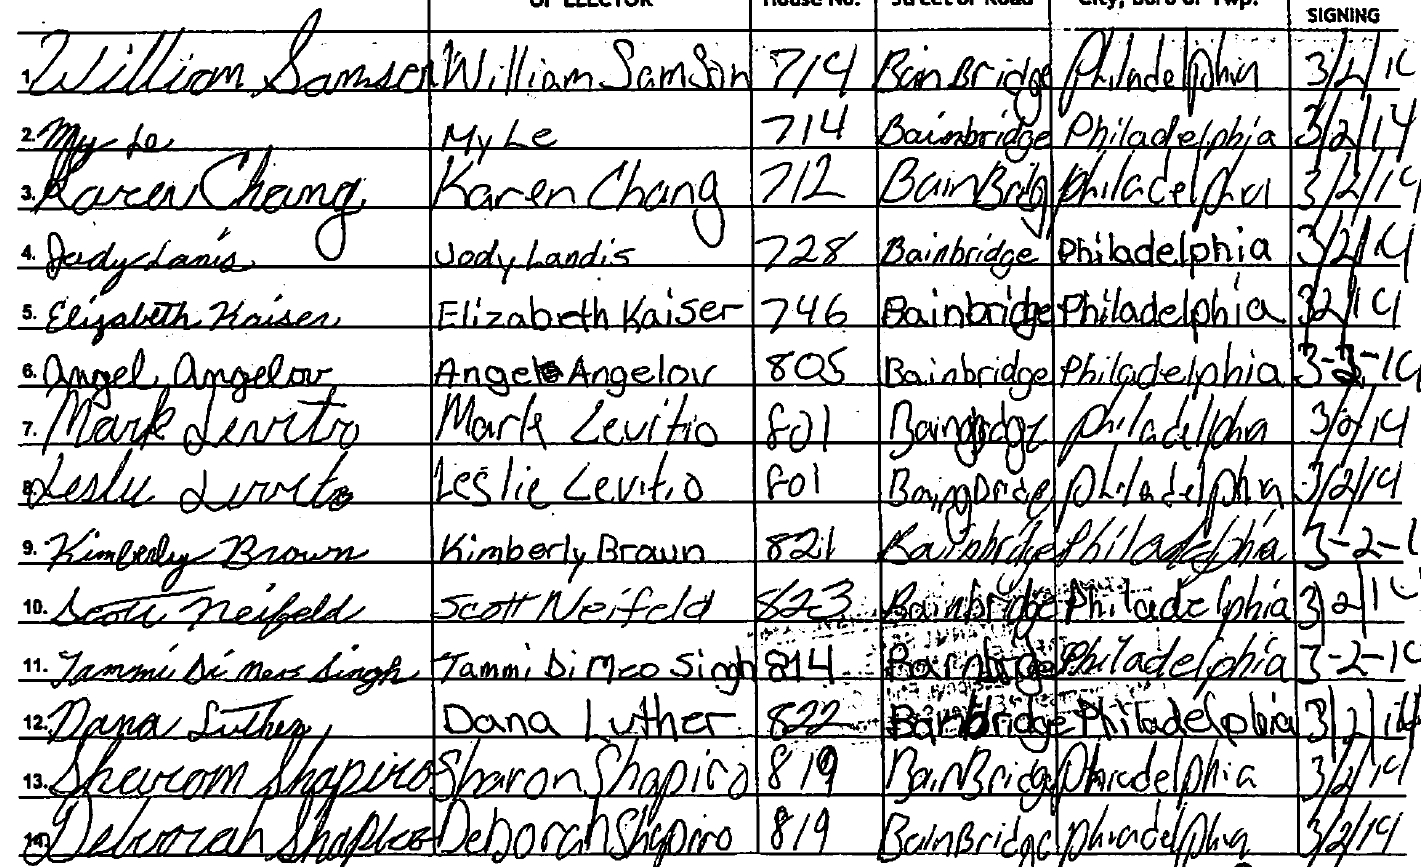 OF ELECTOR House No. Street or Road City, Boro or Twp. SIGNING
1. William Samson William Samson 714 BainBridge Philadelphia 3/2/14
2. My Le My Le 714 Bainbridge Philadelphia 3/2/14
3. Karen Chang Karen Chang 712 BainBridg Philadelphia 3/2/14
4. Jody Landis 728 Bainbridge Philadelphia 3/2/14
5. Elizabeth Kaiser Elizabeth Kaiser 746 Bainbridge Philadelphia 3/2/14
6. Angel Angelov Angel Angelov 805 Bainbridge Philadelphia
7. Mark Levitio Mark Levitio 801 Philadelphia 3/2/14
8. Leslie Levitio Leslie Levitio 801 Philadelphia 3/2/14
9. Kimberly Brown Kimberly Brown 821 Bainbridge Philadelphia 3-2-1
10. Scott Neifeld Scott Neifeld 823 Bainbridge Philadelphia 3/2/14
11. Tammi DiMeo Singh Tammi DiMeo Singh 814 Bainbridge Philadelphia 3-2-14
12. Dana Luther Dana Luther 822 Bainbridge Philadelphia 3/2/14
13. Sharon Shapiro Sharon Shapiro 819 BainBridge Philadelphia 3/2/14
14. Deborah Shapiro Deborah Shapiro 819 BainBridge Philadelphia 3/2/14